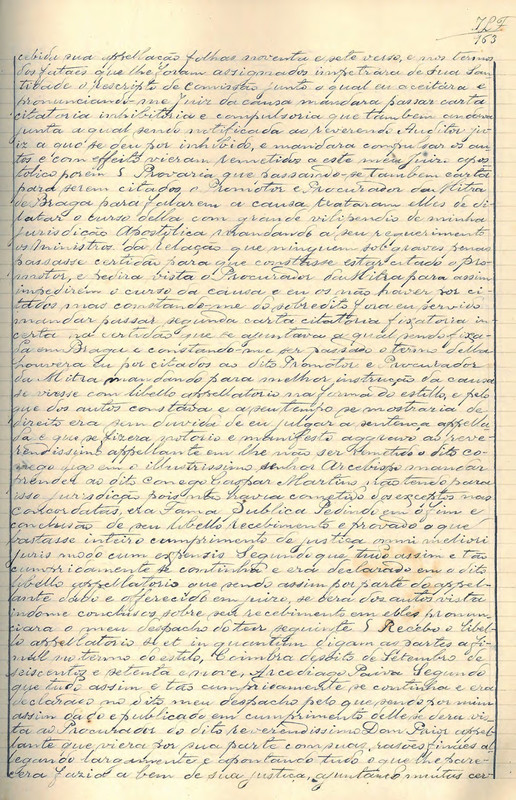 163
cebida sua appellação folhas noventa e sete verso, e nos termos
dos fataes que lhe foram assignados impetrára de Sua San-
tidade o Rescripto de Comissão junto o qual eu aceitára e
pronunciando-me juiz da causa mandára passar carta
citatoria inhibitoria e compulsoria que tambem andava
junta a qual sendo notificada ao reverendo Auditor ju-
iz a quo se deu por inhibido, e mandara compulsar os au-
tos e com effeito vieram remettidos a este meu juizo apos-
tolico porem § Provaria que passando-se tambem carta
para serem citados o Promotor e Procurador da Mitra
de Braga para fallarem a causa trataram elles de di-
latar o curso della com grande vilipendio de minha
jurisdicção Apostolica mandando a seu requerimento
os Ministros da Relação que ninguem sob graves penas
passasse certidão para que constasse estar citado o pro-
motor, e pedira vista o Procurador da Mitra para assim
impedirem o curso da causa e eu os não haver por ci-
tados mas constando-me do sobredito fora eu servido
mandar passar segunda carta citatoria fixatoria in-
certa na certidão que se ajuntava a qual sendo fixa-
da em Braga e constando-me ser passado o termo della
houvera eu por citados ao dito Promotor e Procurador
da Mitra mandando para melhor instrução da causa
se viesse com libello appellatorio na forma do estillo, e pelo
que dos autos constava e a seu tempo se mostraria de
direito era sem duvida de eu julgar a sentença appella-
da e que se fizera notorio e manifesto aggravo ao reve-
rendissimo appellante em lhe não ser remettido o dito co-
nego digo em o illustrissimo senhor Arcebispo mandar
prender ao dito conego Gaspar Martins, não tendo para
isso jurisdição pois não havia cometido dos exceptos nas
concordatas, era Fama Publica Pedindo em o fim e
conclusão de seu libello recebimento e provado o que
bastasse inteiro cumprimento de justiça omni meliori
juris modo cum expensis Segundo que tudo assim e tão
cumpridamente se continha e era declarado em o dito
libello appellatorio que sendo assim por parte do appel-
lante dado e offerecido em juizo, se dera dos autos vista
indo-me conclusos, sobre seu recebimento em elles pronun-
ciara o meu despacho do teor seguinte § Recebo o libel-
lo appellatorio si et in quantum digam as partes a fi-
nal no termo do estilo, Coimbra dezoito de Setembro de
seiscentos e setenta e nove, Arcediago Paiva Segundo
que tudo assim e tão cumpridamente se continha e era
declarado no dito meu despacho pelo que sendo por mim
assim dado e publicado em cumprimento delle se dera vis-
ta ao Procurador do dito reverendissimo Dom Prior appel-
lante que viera por sua parte com suas rasões finaes al-
legando largamente e apontando tudo o que lhe pare-
cera fazia a bem de sua justiça, ajuntando muitas cer-